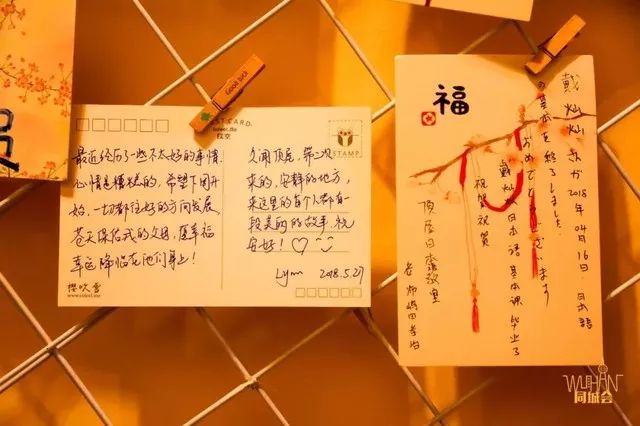 Good luck
POSTCARD.
STAMP
最近经历了一些不太好的事情
心情是糟糕的,希望下周开
始,一切都往好的方向发展
苍天保佑我的父母,愿幸福
幸运降临在他们身上!
樱吹雪
久闻顶屋,第二次
来的,安静的地方,
来这里的每个人都有一
段美的故事,祝
安好!
Lynn 2018.5.27
福
戴灿灿さんが2018年04月16日,日本語
の基本を終了しました。
おめでとうございます
戴灿灿日本語基本课毕业了
祝贺祝贺
顶屋日本
老师
WUHAN
同城会